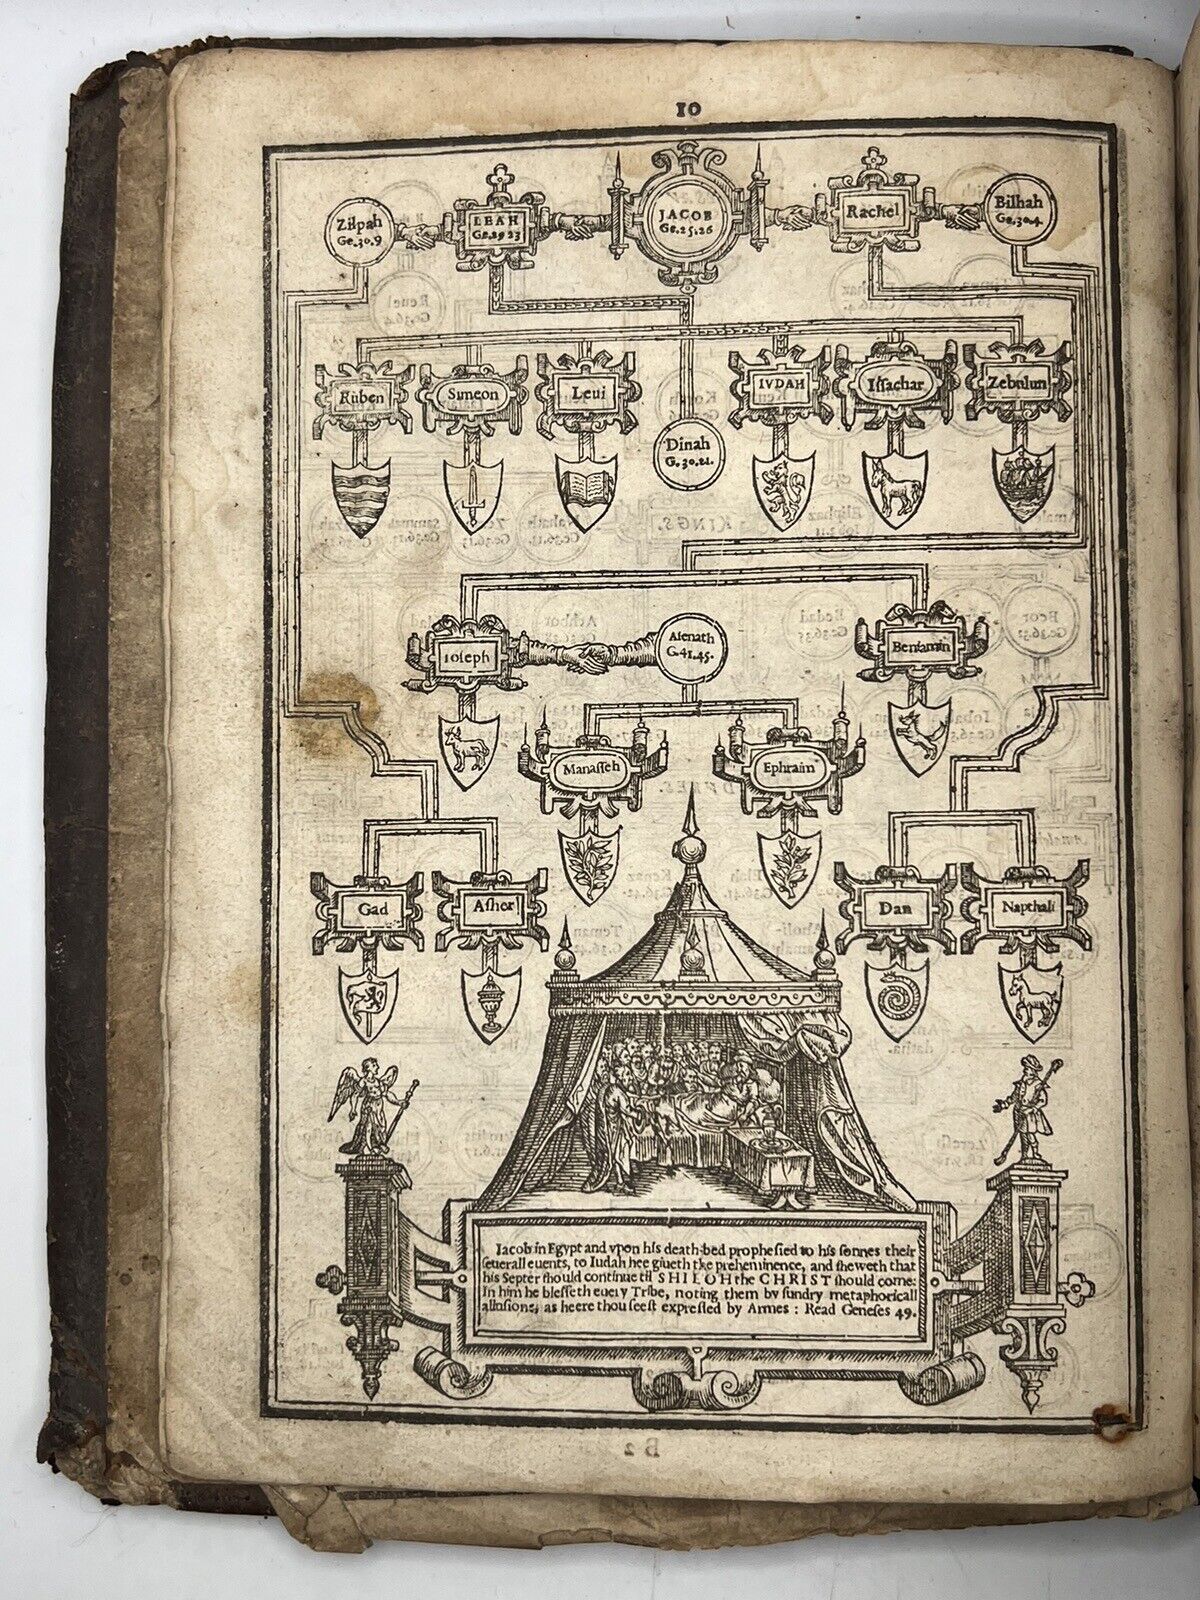 10
Zilpah
Ge.30.9
LEAH
Ge.29 23
JACOB
Ge.25.26
Rachel
Bilhah
Ge.30.4.
Ruben
Simeon
Leui
IVDAH
Iſſachar
Zebulun
Dinah
G.30.21.
Ioſeph
Aſenath
G.41.45.
Beniamin
Manaſſeh
Ephraim
Gad
Aſher
Dan
Napthali
Iacob in Egypt and vpon his death-bed propheſied to his ſonnes their
ſeuerall euents, to Iudah hee giueth the preheminence, and ſheweth that
his Septer ſhould continue til SHILOH the CHRIST ſhould come:
In him he bleſſeth euery Tribe, noting them by ſundry metaphoricall
alluſions, as heere thou ſeeſt expreſſed by Armes: Read Geneſes 49.